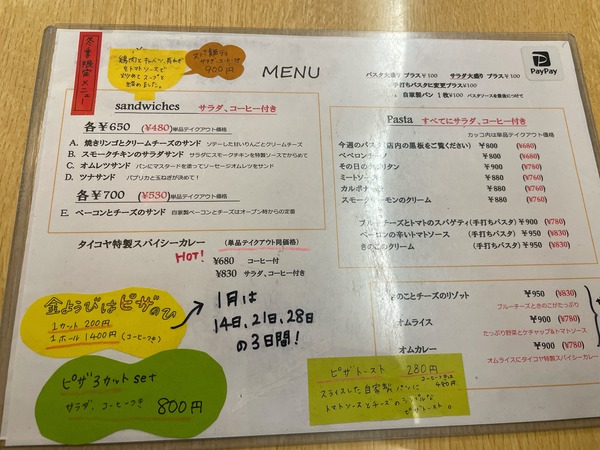 冬季限定メニュー
鶏肉と
をトマトソースで
炒めてスープと
煮込みました。
サラダ、コーヒーつき
900円
MENU
パスタ大盛り プラス¥100 サラダ大盛り プラス¥100
手打ちパスタに変更プラス¥100
自家製パン 1枚¥100 パスタソースを最後につけて
PayPay
sandwiches サラダ、コーヒー付き
各¥650 (¥480)単品テイクアウト価格
A. 焼きリンゴとクリームチーズのサンド ソテーした甘いりんごとクリームチーズ
B. スモークチキンのサラダサンド サラダにスモークチキンを特製ソースでからめて
C. オムレツサンド パンにマスタードを塗ってソーセージオムレツをサンド
D. ツナサンド パプリカと玉ねぎが決めて!
各¥700 (¥530)単品テイクアウト価格
E. ベーコンとチーズのサンド 自家製ベーコンとチーズはオープン時からの定番
タイコヤ特製スパイシーカレー (単品テイクアウト同価格)
HOT!
¥680 コーヒー付
¥830 サラダ、コーヒー付き
金ようびはピザのひ
1カット 200円
1ホール 1400円 (コーヒーつき)
1月は
14日、21日、28日
の3日間!
ピザ3カット set
サラダ、コーヒーつき 800円
Pasta すべてにサラダ、コーヒー付き
カッコ内は単品テイクアウト価格
今週のパスタ(店内の黒板をご覧ください) ¥800 (¥660)
ペペロンチーノ ¥800 (¥660)
その日のナポリタン ¥900 (¥760)
ミートソース ¥880 (¥760)
カルボナーラ ¥880 (¥760)
スモークサーモンのクリーム ¥880 (¥760)
ブルーチーズとトマトのスパゲティ(手打ちパスタ) ¥900 (¥780)
ベーコンの辛いトマトソース (手打ちパスタ) ¥950 (¥830)
きのこのクリーム (手打ちパスタ) ¥950 (¥830)
きのことチーズのリゾット ¥950 (¥830)
ブルーチーズときのこがたっぷり
オムライス ¥900 (¥780)
たっぷり野菜とケチャップ&トマトソース
オムカレー ¥900 (¥780)
オムライスにタイコヤ特製スパイシーカレー
ピザトースト 280円
コーヒーつきは480円
スライスした自家製パンに
トマトソースとチーズのシンプルな
ピザトースト。